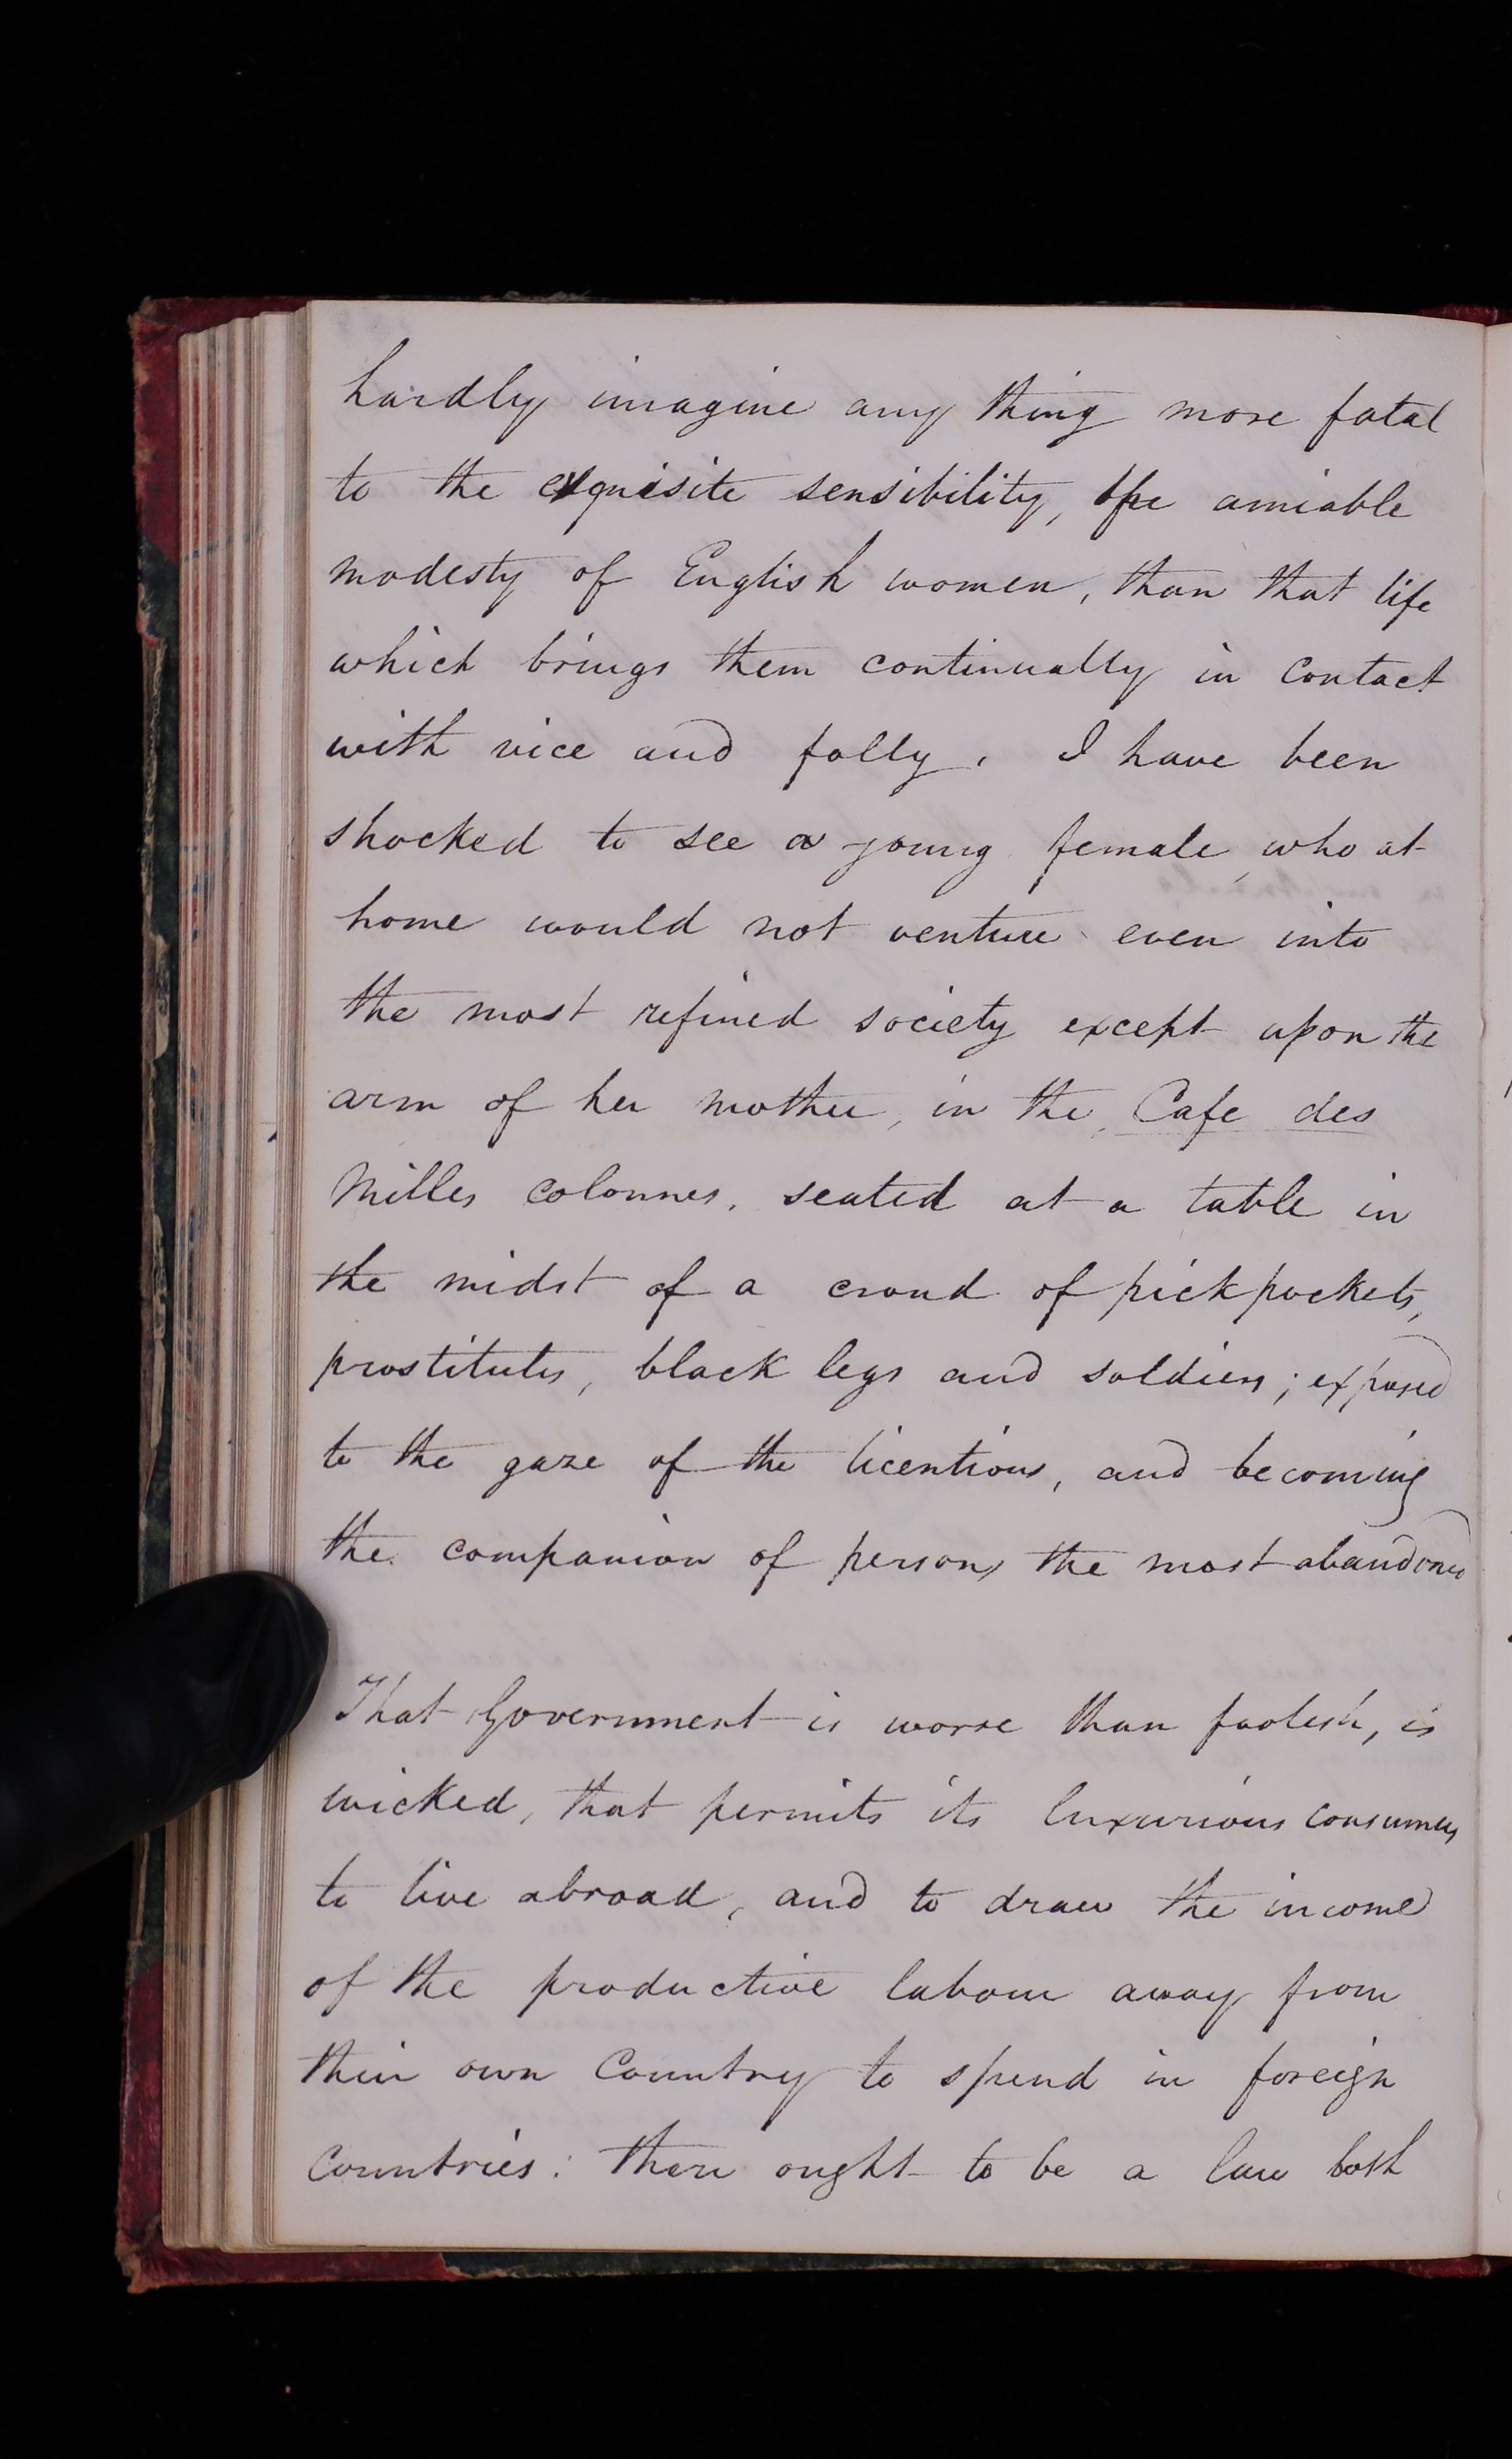 hardly imagine any thing more fatal
to the exquisite sensibility, the amiable
modesty of English women, than that life
which brings them continually in contact
with vice and folly. I have been
shocked to see a young female, who at
home would not venture even into
the most refined society except upon the
arm of her mother, in the, Cafe des
Milles colonnes, seated at a table in
the midst of a croud of pickpockets,
prostitutes, black legs and soldiers; exposed
to the gaze of the licentious, and becoming
the companion of persons the most abandoned
That Government is worse than foolish, is
wicked, that permits its luxurious consumers
to live abroad, and to draw the income
of the productive labour away from
their own Country to spend in foreign
Countries: there ought to be a law both